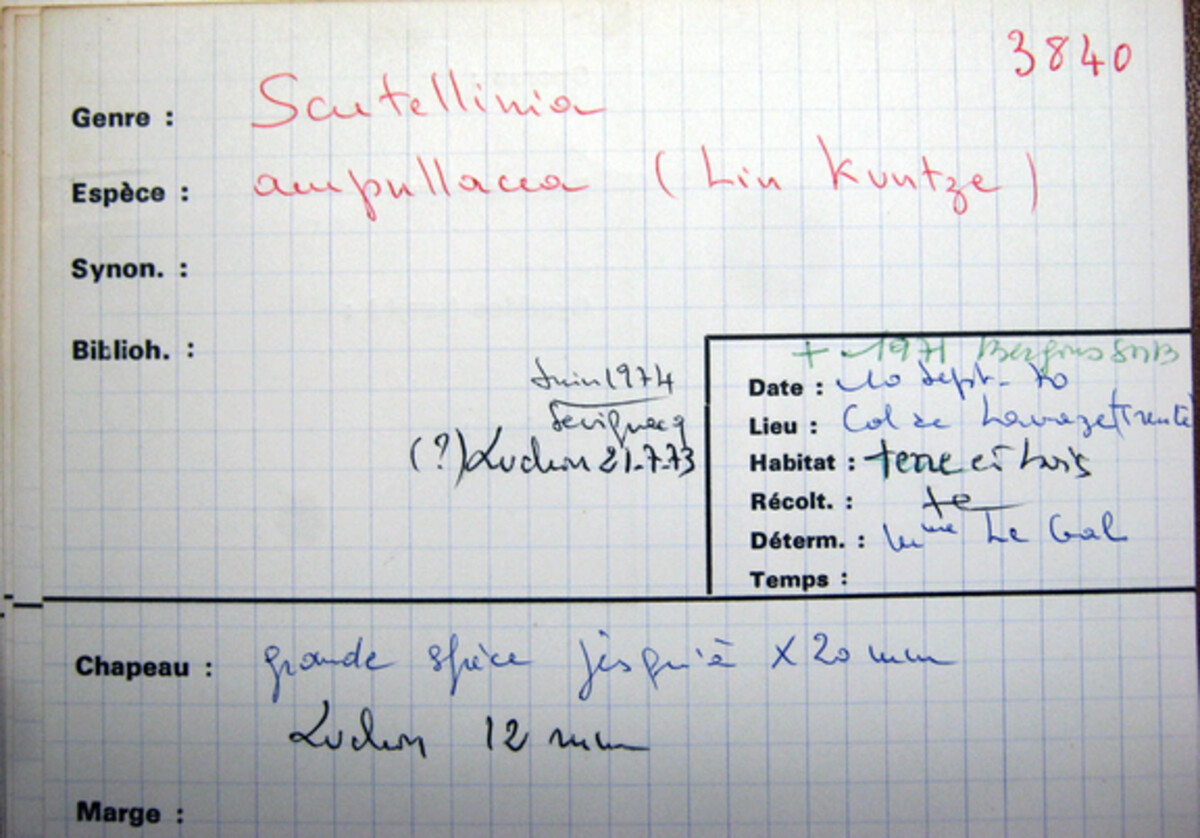 3840
Genre : Scutellinia
Espèce : ampullacea (Lin Kuntze)
Synon. :
Biblioh. :
Juin 1974
Sévignacq
(?) Luchon 21.7.73
+ 1971
Date : 10 Sept. 70
Lieu : Col de Lavazet (Trente
Habitat : terre et bois
Récolt. : te
Déterm. : Mme Le Gal
Temps :
Chapeau : grande espèce jusqu'à x 20 mm
Luchon 12 mm
Marge :